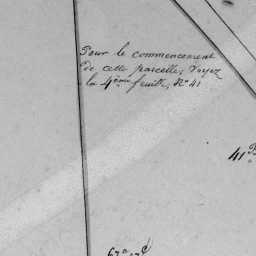 Pour le commencement
de cette parcelle, Voyez
la 4ème feuille, No 41
41
67a